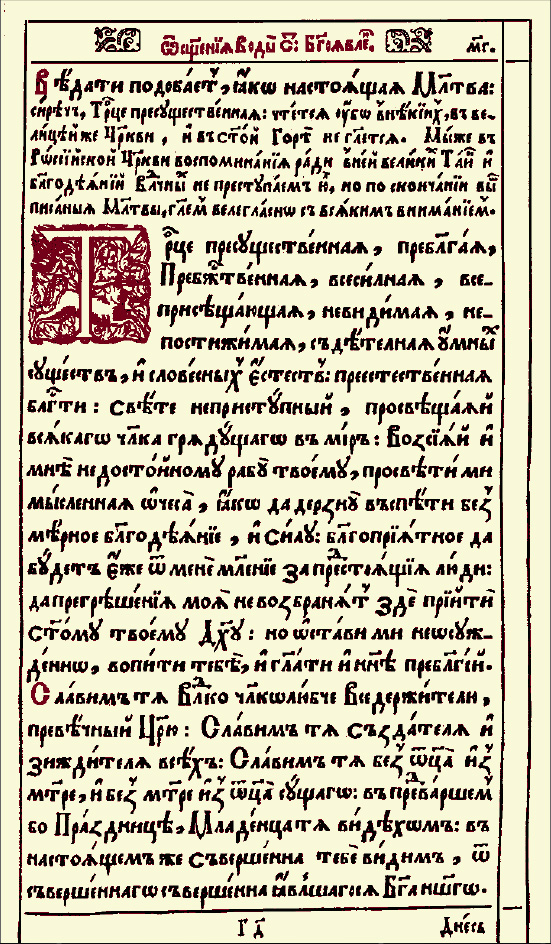 Ѿщ҃енїѧ Воды̀ ст҃: Бг҃оѧвле́. м҃г.
Вѣ́дати подоба́етъ, ꙗ҆́кѡ настоѧ́щаѧ Мл҃тва:
си́рѣчь, Тр҃це пресꙋщественнаѧ: чте́тсѧ ᲂу҆́бѡ в҆ нѣ́кїихъ, въ ве-
ли́цѣй же Цр҃кви, и҆ въ ст҃о́й Горѣ̀ не гл҃етсѧ. Мы́же въ
Рѡссі́йской Цр҃кви воспомина́нїѧ ра́ди в҆ не́й вели́кихъ Та́инъ и҆
бл҃годѣѧ́нїй Влⷣчныхъ не престꙋпа́емъ и҆̀, но по сконча́нїи вы́ш
пи́саныѧ Мл҃твы, гл҃емъ велегла́снѡ съ всѧ́кимъ внима́нїемъ.
Тр҃це пресꙋществе́ннаѧ, пребл҃га́ѧ,
Пребж҃тве́ннаѧ, всеси́лнаѧ, все-
присѣща́ющаѧ, неви́димаѧ, не-
постижи́маѧ, съдѣ́телнаѧ ᲂу҆́мныхъ
сꙋ́ществъ, и҆ слове́сныхъ є҆сте́ствъ: преестестве́ннаѧ
бл҃гти: свѣ́те непристꙋ́пный, просвѣща́ѧй
всѧ́кагѡ чл҃ка грѧдꙋ́щагѡ въ мі́ръ: Возсїѧ́й и҆
мнѣ̀ недосто́йномꙋ рабꙋ̀ твоемꙋ̀, просвѣти́ ми
мы́сленнаѧ ѻ҆чеса̀, ꙗ҆́кѡ да дерзнꙋ̀ въспѣ́ти без̾
мѣ́рное бл҃годѣѧ́нїе, и҆ си́лꙋ: бл҃гопрїѧ́тное да
бꙋ́детъ є҆́же ѿ менє̀ мл҃енїе за предстоѧ́щїѧ лю́ди:
да прегрѣше́нїѧ моѧ̀ не возбранѧ́тъ здѣ̀ прїи́ти
ст҃о́мꙋ твоемꙋ̀ Дх҃ꙋ: но ѡ҆ста́ви ми неѡсꙋж-
де́ннѡ, вопи́ти тебѣ̀, и҆ гл҃ати и҆ нн҃ѣ пребл҃гі́й.
Сла́вимъ тѧ Влⷣко чл҃колю́бче Вседержи́тели,
превѣ́чный Цр҃ю: Сла́вимъ тѧ създа́телѧ и҆
зижди́телѧ всѣ́хъ: Сла́вимъ тѧ без̾ ѻ҆ц҃а̀ и҆з̾
мт҃ре, и҆ без̾ мт҃ре и҆з̾ ѻ҆ц҃а̀ сꙋ́щагѡ: въ предва́ршем
бо Пра́здницѣ, Младе́нца тѧ ви́дѣхѡмъ: въ
настоѧ́щемъ же съверше́нна тебѐ ви́димъ, ѿ
съверше́ннагѡ съверше́нна ꙗ҆́вльшагосѧ Бг҃а на́шего.
Г д҃
Дне́сь